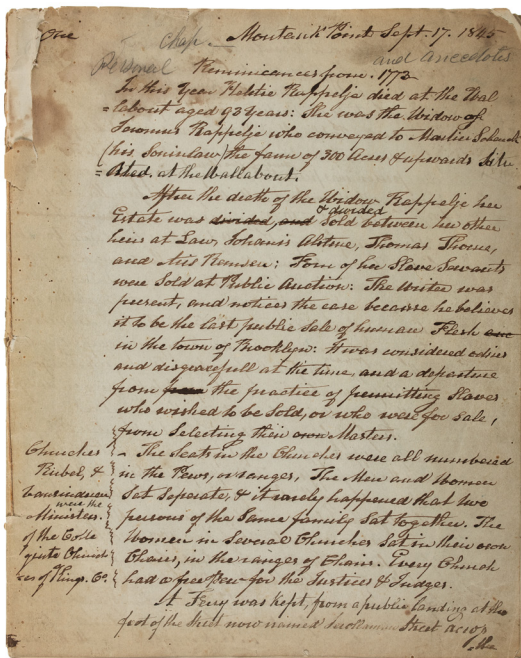 One Chap. — Montauk Point Sept. 17. 1845
Personal and Anecdotes
Reminicances from 1773
In this Year Rappelje died at the Wal
=labout aged 93 Years: She was the Widow of
Rappelje who conveyed to Martin Schenck
(his Soninlaw) the farm of 300 Acres & upwards Situ
=ated at the Wallabout.
After the death of the Widow Rappelje her
& divided
Estate was divided, and Sold between her other
heirs at Law, Alstine, Thomas Thorne,
and Remsen: Four of her Slave Servants
were Sold at Public Auction: The Writer was
present, and notices the case because he believes
it to be the last public Sale of human Flesh
in the town of Brooklyn: It was considered odius
and disgracefull at the time, and a departure
from the practice of permitting Slaves
who wished to be Sold, or who were for Sale,
from Selecting their own Masters.
Churches
Rubel, &
were the
Ministers
of the Colle
giate Church
=es of Kings. Co.
— The Seats in the Churches were all numbered
in the Pews, or ranges, The Men and Women
Sat Seperate, & it rarely happened that two
persons of the Same family Sat together. The
Women in Several Churches Sat in their own
Chairs, in the ranges of Chairs. Every Church
had a free Pew for the Justices & Judges.
A Ferry was kept, from a public landing at the
foot of the Street now named Street across
the